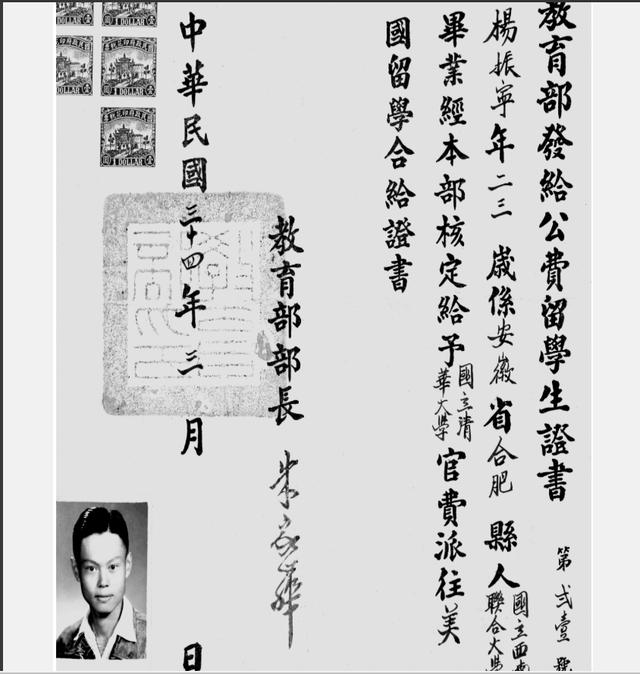 教育部發給公費留學生證書 第弍壹號
楊振寧年二三歲係安徽省合肥縣人國立西南聯合大學
畢業經本部核定給予國立清華大學官費派往美
國留學合給證書
教育部部長 朱家驊
中華民國三十四年三月 日
1 DOLLAR
1 DOLLAR
1 DOLLAR